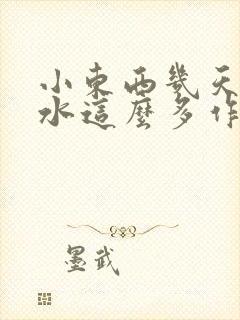 小東西幾天
水這麼多作
墨武